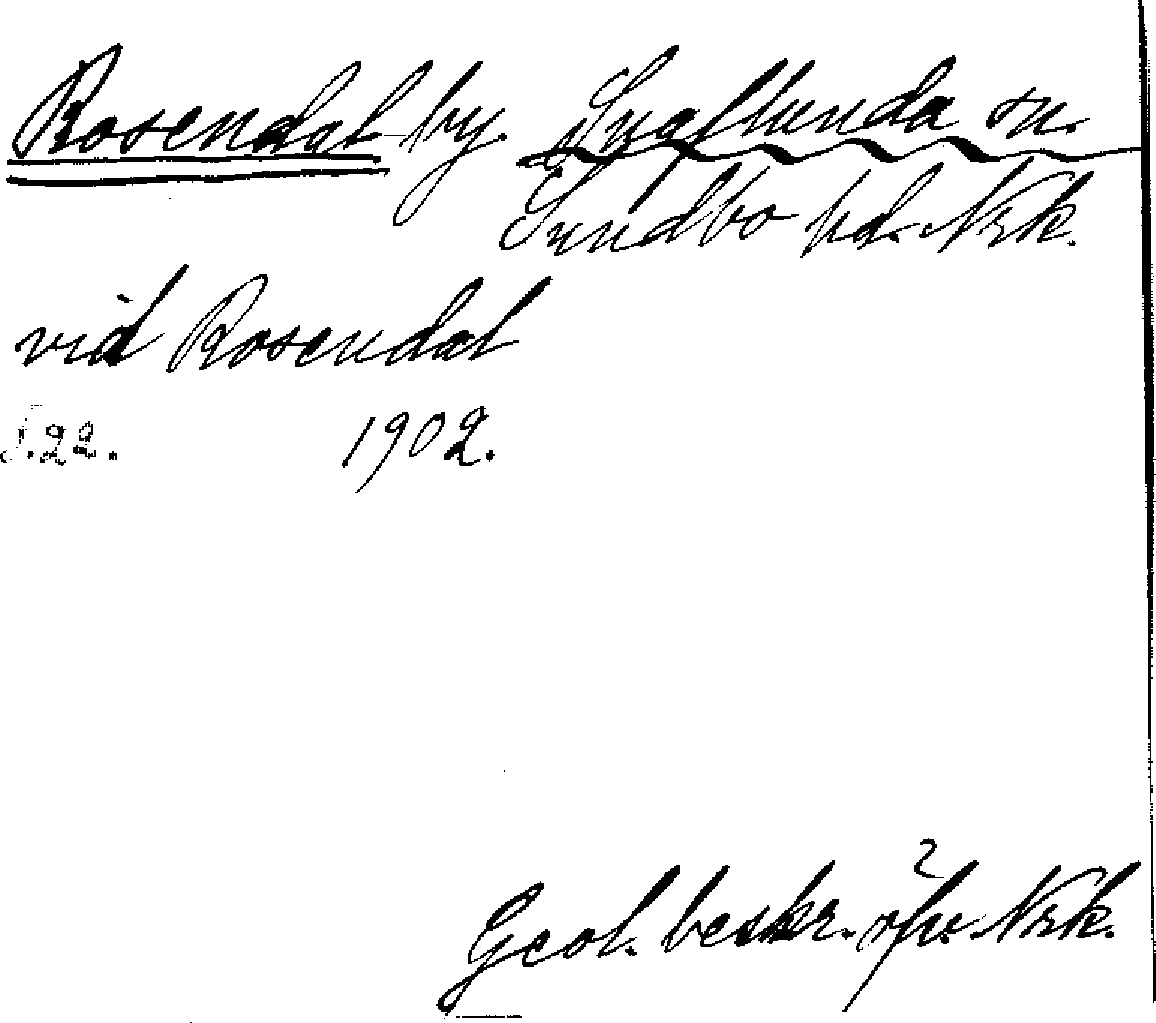 Rosendal by. Snaflunda sn.
Sundbo hd. Nrk.
vid Rosendal
S.22. 1902.
Geol. beskr. öfv. Nrk.